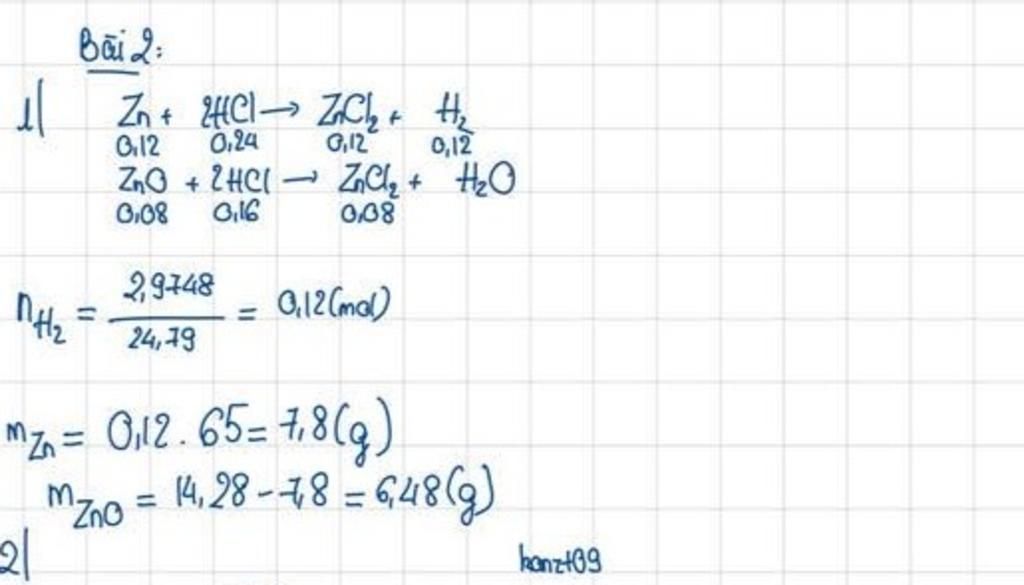 Bài 2:
1| Zn + 2HCl → ZnCl₂ + H₂
0,12 0,24 0,12 0,12
ZnO + 2HCl → ZnCl₂ + H₂O
0,08 0,16 0,08
n_H₂ = 2,9748 / 24,79 = 0,12 (mol)
m_Zn = 0,12 . 65 = 7,8 (g)
m_ZnO = 14,28 - 7,8 = 6,48 (g)
2|